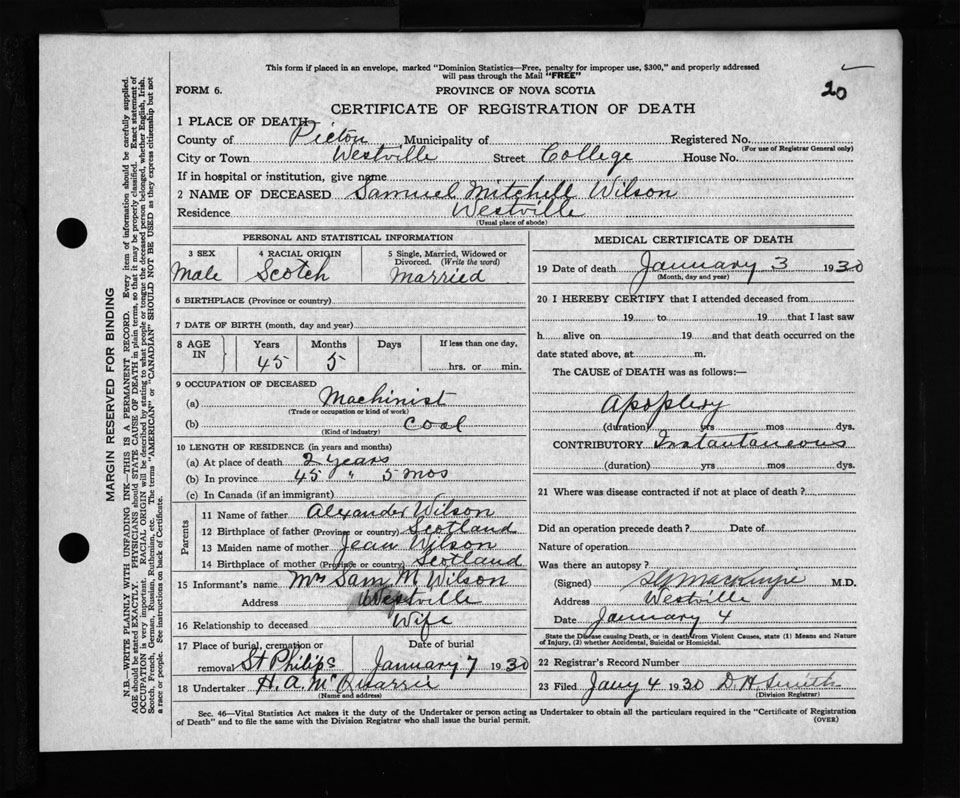 This form if placed in an envelope, marked "Dominion Statistics—Free, penalty for improper use, $300," and properly addressed
will pass through the Mail "FREE"
20
FORM 6. PROVINCE OF NOVA SCOTIA
CERTIFICATE OF REGISTRATION OF DEATH
1 PLACE OF DEATH
County of Pictou Municipality of Registered No.
(For use of Registrar General only)
City or Town Westville Street College House No.
If in hospital or institution, give name
2 NAME OF DECEASED Samuel Mitchell Wilson
Residence Westville
(Usual place of abode)
PERSONAL AND STATISTICAL INFORMATION
3 SEX 4 RACIAL ORIGIN 5 Single, Married, Widowed or Divorced. (Write the word)
Male Scotch Married
6 BIRTHPLACE (Province or country)
7 DATE OF BIRTH (month, day and year)
8 AGE IN Years Months Days If less than one day,
45 5 hrs. or min.
9 OCCUPATION OF DECEASED
(a) Machinist
(Trade or occupation or kind of work)
(b) Coal
(Kind of industry)
10 LENGTH OF RESIDENCE (in years and months)
(a) At place of death 2 years
(b) In province 45 " 5 mos
(c) In Canada (if an immigrant)
Parents
11 Name of father Alexander Wilson
12 Birthplace of father (Province or country) Scotland
13 Maiden name of mother Jean Wilson
14 Birthplace of mother (Province or country) Scotland
15 Informant's name Mrs Sam M Wilson
Address Westville
16 Relationship to deceased Wife
17 Place of burial, cremation or removal Date of burial
St Philips January 7 1930
18 Undertaker H. A. McQuarrie
(Name and address)
MEDICAL CERTIFICATE OF DEATH
19 Date of death January 3 1930
(Month, day and year)
20 I HEREBY CERTIFY that I attended deceased from
19 to 19 that I last saw
h alive on 19 and that death occurred on the
date stated above, at m.
The CAUSE of DEATH was as follows:—
Apoplexy
(duration) yrs mos dys.
CONTRIBUTORY Instantaneous
(duration) yrs mos dys.
21 Where was disease contracted if not at place of death?
Did an operation precede death? Date of
Nature of operation
Was there an autopsy?
(Signed) MacKenzie M.D.
Address Westville
Date January 4
State the Disease causing Death, or in death from Violent Causes, state (1) Means and Nature
of Injury, (2) whether Accidental, Suicidal or Homicidal.
22 Registrar's Record Number
23 Filed Jany 4 1930 D. H. Smith
(Division Registrar)
Sec. 46—Vital Statistics Act makes it the duty of the Undertaker or person acting as Undertaker to obtain all the particulars required in the "Certificate of Registration
of Death" and to file the same with the Division Registrar who shall issue the burial permit. (OVER)
MARGIN RESERVED FOR BINDING
N.B.—WRITE PLAINLY WITH UNFADING INK—THIS IS A PERMANENT RECORD. Every item of information should be carefully supplied.
AGE should be stated EXACTLY. PHYSICIANS should STATE CAUSE OF DEATH in plain terms, so that it may be properly classified. Exact statement of
OCCUPATION is very important. RACIAL ORIGIN will be described by stating to what people or tongue the deceased person belonged, whether English, Irish,
Scotch, French, German, Russian, Ruthenian, etc. The terms "AMERICAN" or "CANADIAN" SHOULD NOT BE USED as they express citizenship but not
a race or people. See instructions on back of Certificate.